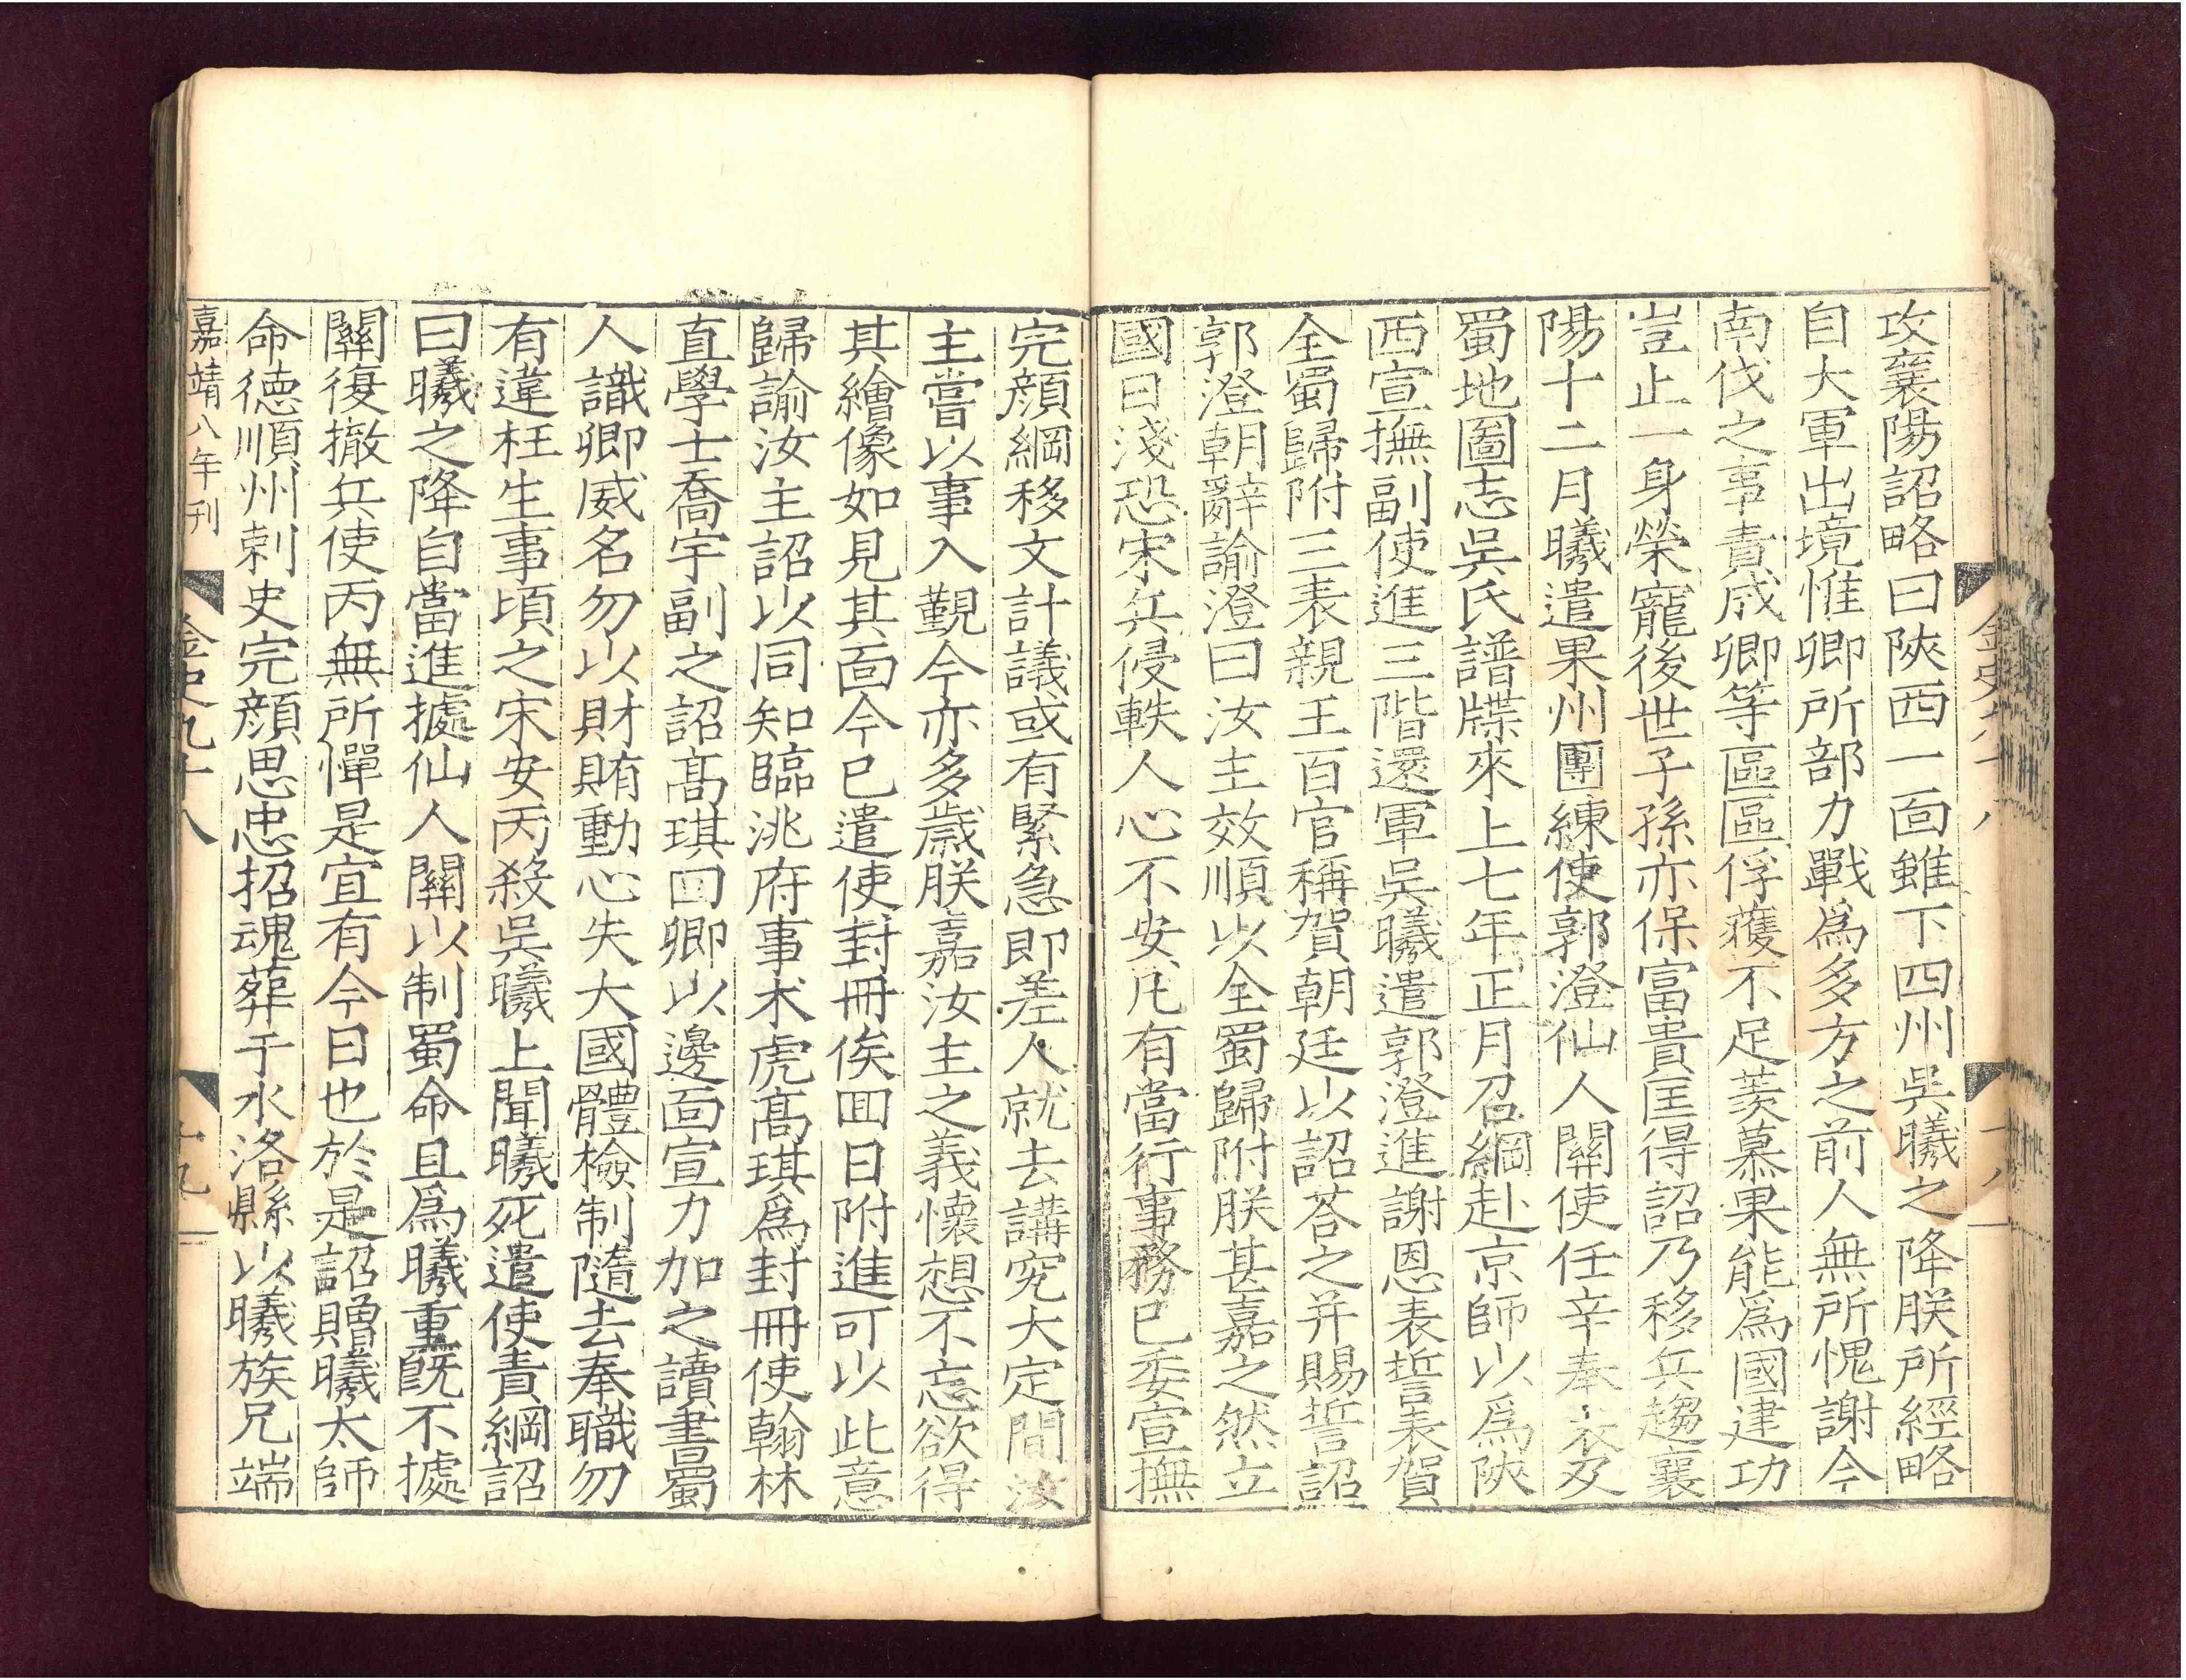 攻襄陽詔略曰陜西一面雖下四州吳曦之降朕所經略
自大軍出境惟卿所部力戰爲多方之前人無所愧謝今
南伐之事責成卿等區區俘獲不足羨慕果能爲國建功
豈止一身榮寵後世子孫亦保富貴匡得詔乃移兵趨襄
陽十二月曦遣果州團練使郭澄仙人關使任辛奉表及
蜀地圖志吳氏譜牒來上七年正月召綱赴京師以爲陜
西宣撫副使進三階還軍吳曦遣郭澄進謝恩表誓表賀
全蜀歸附三表親王百官稱賀朝廷以詔荅之并賜誓詔
郭澄朝辭諭澄曰汝主效順以全蜀歸附朕甚嘉之然立
國日淺恐宋兵侵軼人心不安凡有當行事務已委宣撫
完顔綱移文計議或有緊急即差人就去講究大定間汝
主嘗以事入覲今亦多歲朕嘉汝主之義懷想不忘欲得
其繪像如見其面今已遣使封冊俟回日附進可以此意
歸諭汝主詔以同知臨洮府事朮虎髙琪爲封冊使翰林
直學士喬宇副之詔髙琪曰卿以邊面宣力加之讀書蜀
人識卿威名勿以財賄動心失大國體檢制隨去奉職勿
有違枉生事頃之宋安丙殺吳曦上聞曦死遣使責綱詔
曰曦之降自當進據仙人關以制蜀命且爲曦重旣不據
關復撤兵使丙無所憚是宜有今日也於是詔贈曦太師
命德順州刺史完顔思忠招魂葬于水洛縣以曦族兄端
嘉靖八年刊
金史九十八
十九